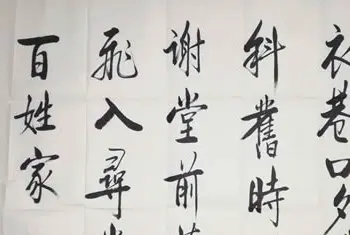 衣巷口夕
斜舊時
谢堂前
飛入尋
百姓家